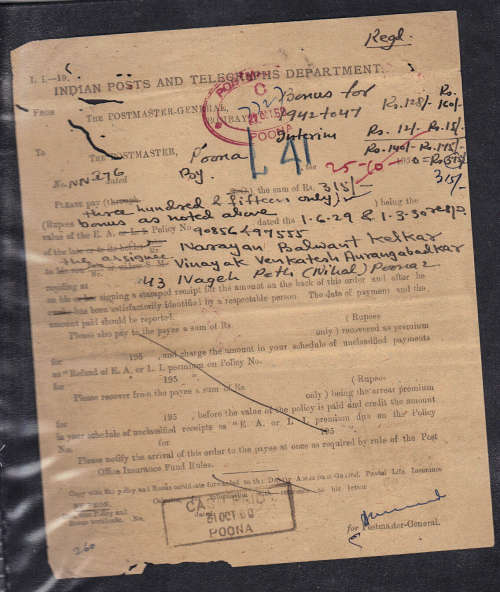 Regd.
L I.—19.
INDIAN POSTS AND TELEGRAPHS DEPARTMENT.
From THE POSTMASTER-GENERAL,
BOMBAY
POSTM
C
OCT 50
POONA
Bonus for
1942 to 47
Interim
Rs. 128/- Rs. 160/-
Rs. 12/- Rs. 15/-
Rs. 140/- Rs. 175/-
315/-
To THE POSTMASTER, Poona
By.
L 41
25-10 195
No. NN 276 dated
PLEASE pay (through
the sum of Rs. 315/-
three hundred & fifteen only)
(Rupees bonus as noted above ) being the
value of the E. A. or L. I. Policy No. 90856497555 dated the 1-6-29 & 1-3-30
of the Narayan Balwant Kelkar
the assignee
to his Vinayak Venkatesh Aurangabadkar
residing at 43 Poona 2
on his or her signing a stamped receipt for the amount on the back of this order and after he
has been satisfactorily identified by a respectable person. The date of payment and the
amount paid should be reported.
Please also pay to the payee a sum of Rs. (Rupees
only) recovered as premium
for 195 , and charge the amount in your schedule of unclassified payments
as "Refund of E. A. or L. I. premium on Policy No.
for 195
Please recover from the payee a sum of Rs. (Rupees
only) being the arrear premium
for 195 , before the value of the policy is paid and credit the amount
in your schedule of unclassified receipts as "E. A. or L. I. premium due on the Policy
No. for 195
Please notify the arrival of this order to the payee at once as required by rule of the Post
Office Insurance Fund Rules.
Copy with the policy and Bonus certificate forwarded to the Postal Life Insurance
to his letter
Policy and
Bonus certificate. No.
dated
31 OCT 50
POONA
for Postmaster-General.
260